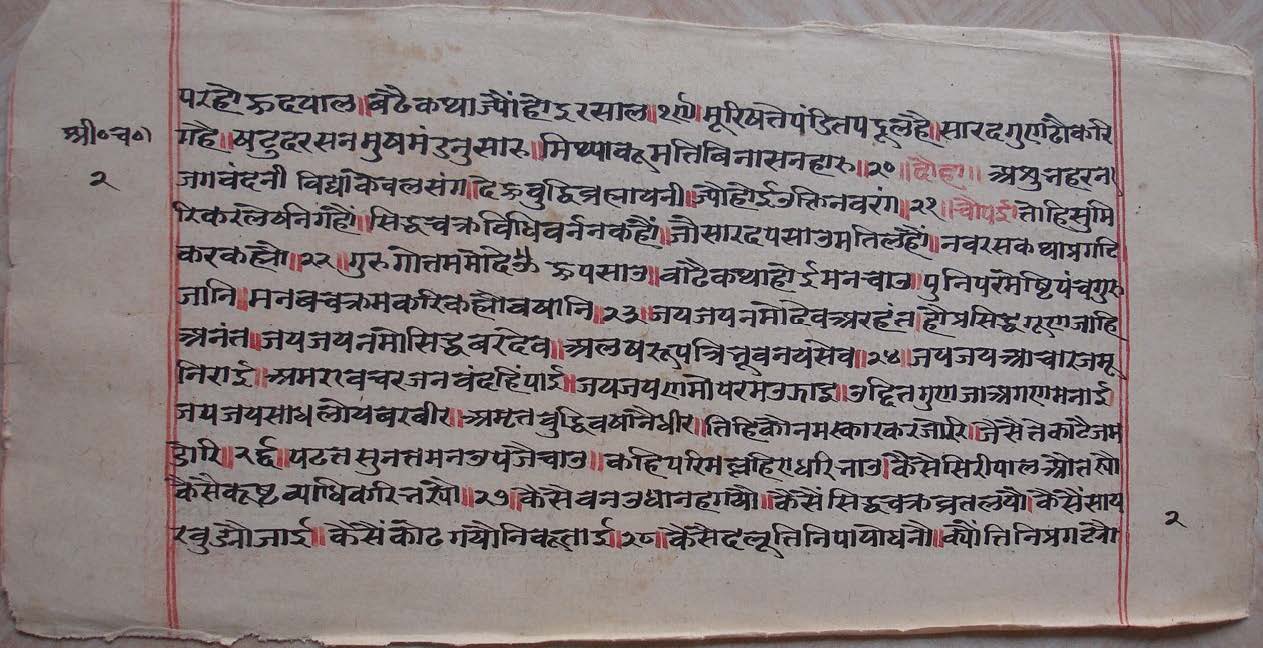 परहोऊदयाल॥बढैकथाज्यौंहोइरसाल॥१९॥मूरिषतेपंडितपदुलहै॥सारदगुणजौकरि
श्री॰च॰॥
गहै॥षटुदरसनमुषमंडनुसारु॥मिथ्याकुमतिविनासनहारु॥२०॥दोहा॥अशुनहरन।
२
जगवंदनी विद्याकेवलसंग॥देऊबुद्धिब्रह्मायनी॥ज्यौहोईउक्तिनवरंग॥२१॥चौपई॥तोहिसुमि
रिकर गहौं॥सिद्धचक्रविधिवर्ननकहौं॥जौसारदपसाउमतिलहौं॥नवरसकथाप्रगटि
करकह्यौ॥२२॥गुरुगोत्तममोदे ऊपसाउ॥बाढैकथाहोईमनचाउ॥पुनिपरमेष्टिपंचगुरु
जानि॥मनवचक्रमकरिकह्यौवषानि॥२३॥जयजयनमोदेवअरहंत॥हौप्रसिद्धगुणजाहि
अनंत॥जयजयनमोसिद्धबरदेव॥अलषरूपत्रिभूवनयसेव॥२४॥जयजयआचारजमू
निराई॥अमररावचरजनवंदहिंपाई॥जयजयणमोपरमउझाइ॥उद्दितगुणजाअगणमनाई
जयजयसाधलोयबरबीर॥अमृतबुद्धिवषानैधीर॥तिहिकौनमस्कारकरजोरि॥जैसेतेकाटैजम
डोरि॥२६॥पढतसुनतमनउपजैचाउ॥कहि धरिभाउ॥कैसेसिरीपालऔतस्यौ
कैसैकुष्टव्याधिकरिभस्यौ॥२७॥कैसैवनउधानहगयौ॥कैसेंसिद्धचक्रव्रतलयौ॥कैसेंसाय
२
रबुझौजाई॥कैसैंकोढगयौनिकुताई॥२८॥कैसैदलू पायोघनौ॥क्यौंतिनिप्रगटयौ